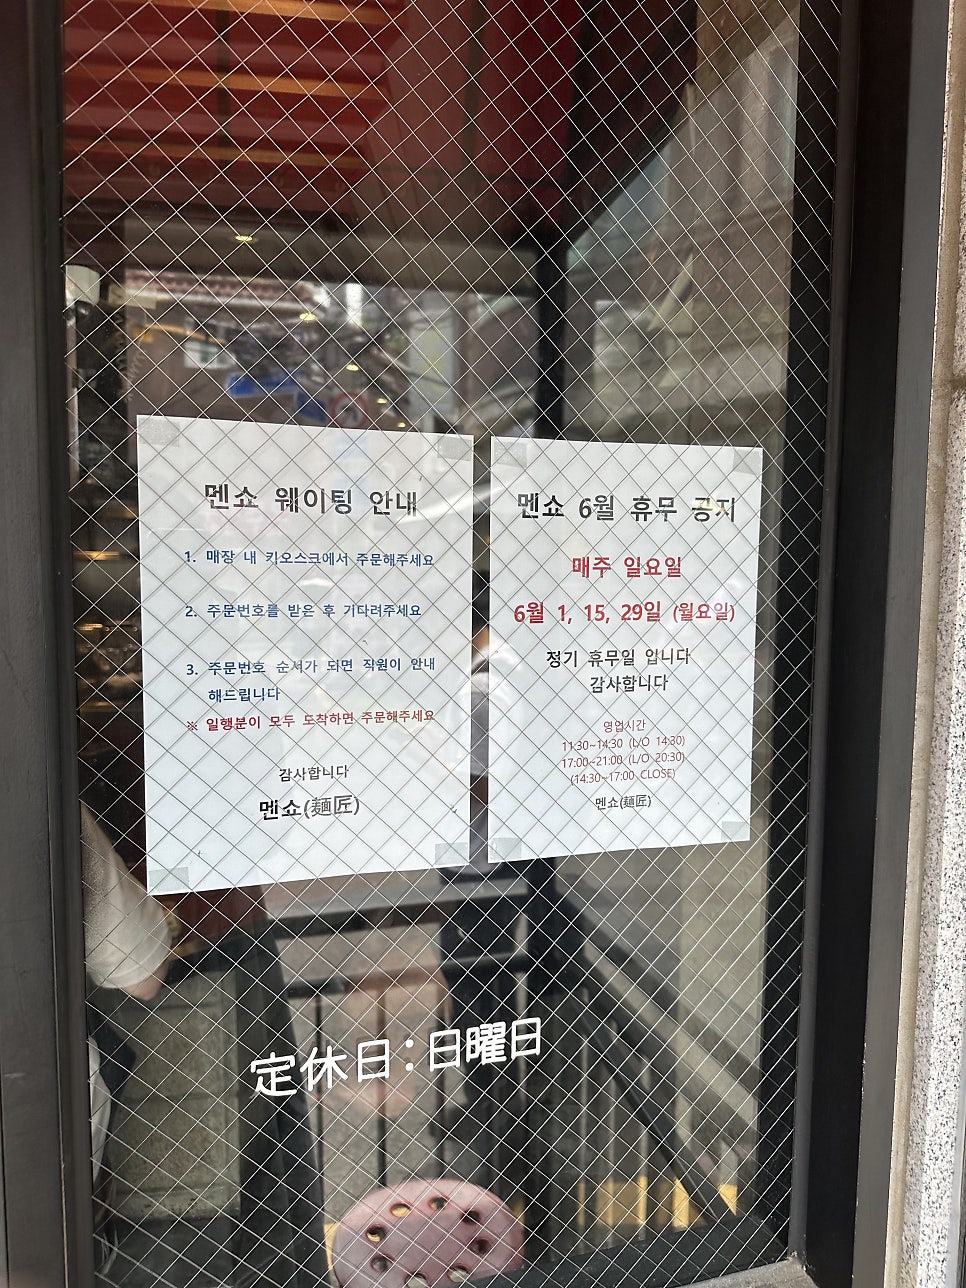 멘쇼 웨이팅 안내
1. 매장 내 키오스크에서 주문해주세요
2. 주문번호를 받은 후 기다려주세요
3. 주문번호 순서가 되면 직원이 안내
해드립니다
※ 일행분이 모두 도착하면 주문해주세요
감사합니다
멘쇼(麺匠)
멘쇼 6월 휴무 공지
매주 일요일
6월 1, 15, 29일 (월요일)
정기 휴무일 입니다
감사합니다
영업시간
11:30~14:30 (L/O 14:30)
17:00~21:00 (L/O 20:30)
(14:30~17:00 CLOSE)
멘쇼(麺匠)
定休日:日曜日